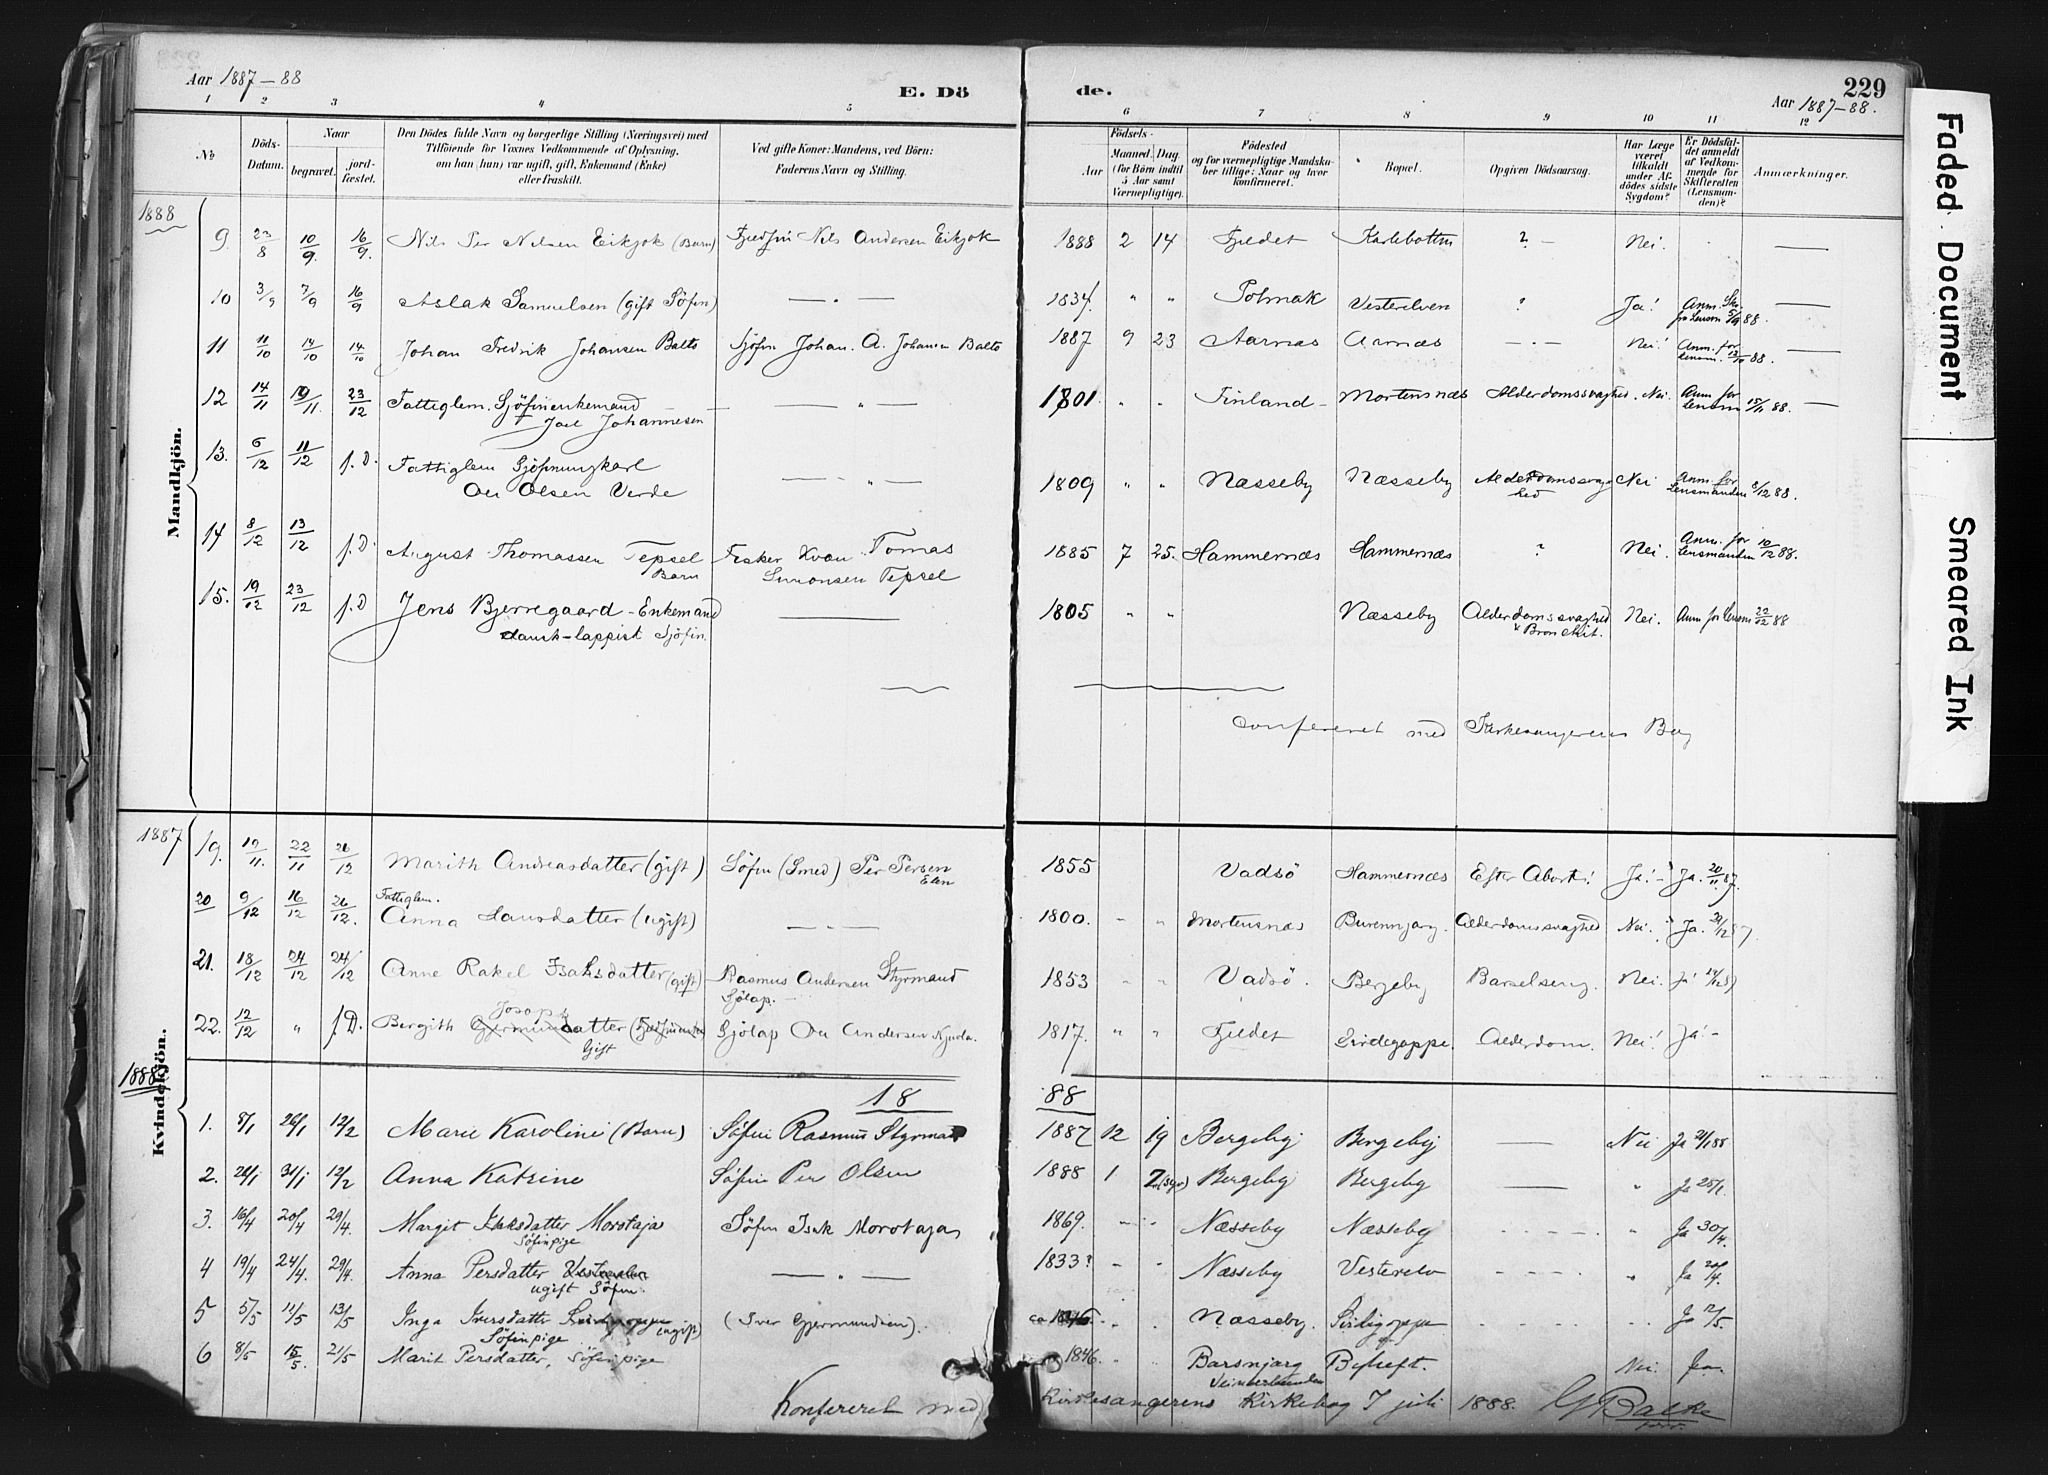 Aar 1887-88
E. Dö
de.
229
Aar 1887-88.
1 2 3 4 5 6 7 8 9 10 11 12
No
Döds-Datum.
Naar
begravet.
jord-fæstet.
Den Dödes fulde Navn og borgerlige Stilling (Næringsvei) med
Tilföiende for Voxnes Vedkommende af Oplysning,
om han (hun) var ugift, gift, Enkemand (Enke)
eller fraskilt.
Ved gifte Koner: Mandens, ved Börn:
Faderens Navn og Stilling.
Födsels-
Aar
Maaned. Dag
(for Börn indtil
5 Aar samt
Værnepligtige).
Födested
og for værnepligtige Mandska-
ber tillige: Naar og hvor
konfirmeret.
Bopæl.
Opgiven Dödsaarsag.
Har Læge
været
tilkaldt
under Af-
dödes sidste
Sygdom?
Er Dödsfal-
det anmeldt
af Vedkom-
mende for
Skifteretten
(Lensman-
den)?
Anmærkninger.
Mandkjön.
1888
9. 23/8 10/9. 16/9. Nils Per Nilsen Eikjok (Barn) Fjeldfin Nils Andersen Eikjok 1888 2 14 Fjeldet Karlebotten ? - Nei.
10 3/9 7/9 16/9 Aslak Samuelsen (gift Söfin) — " — 1834. " " Polmak Vesterelven ? Ja! Anm. 88
11 11/10 14/10 14/10 Johan Fredrik Johansen Balto Sjöfin Johan. A. Johansen Balto 1887 9 23 Aarnæs Arnæs — Nei! Anm. for Lensm. 13/10 88.
12 14/11 19/11 23/12 Fattiglem. Sjöfinenkemand
Joel Johannesen — " — 1801. " " Finland Mortensnæs Alderdomssvaghed. Nei Anm for Lensm 15/11 88.
13. 6/12 11/12 f.D. Fattiglem Sjöfinungkarl
Ou Olsen Verde — " — 1809 " " Næsseby Næsseby Alderdomssvaghed Nei Anm. for Lensmanden 8/12 88.
14 8/12 13/12 f.D. August Thomassen Tepsel
Barn Fisker Kvæn Tomas
Simonsen Tepsel 1885 7 25. Hammernæs Hammernæs ? Nei. Anm. for Lensmanden 10/12 88.
15. 19/12 23/12 f.D Jens Bjerregaard - Enkemand
dansk-lappist Sjöfin. 1805 " " Næsseby Alderdomssvaghed
& Bronckit. Nei. Anm for Lensm 22/12 88
Confereret med Kirkesangerens Bog
Kvindekjön.
1887
19. 12/11. 22/11 26/12 Marith Andreasdatter (gift) Söfin (Smed) Per Persen
1855 Vadsö Hammernæs Efter Abort! Ja! Ja. 20/11 87.
20 9/12 16/12 26/12. Fattiglem.
Anna Larsdatter (ugift) — " — 1800. " " Mortensnæs Burennjarg. Alderdomssvaghed Nei. Ja.
21. 18/12 24/12 24/12 Anne Rakel Isaksdatter (gift) Rasmus Andersen Styrmand
Sjölap. 1853 " " Vadsö. Bergeby Barselseng. Nei. Ja
22. 12/12 " f.D. Bergith Joseps
datter
Gift Sjölap Ou Andersen Kjuda. 1817. " " Fjeldet Sirdegoppe. Alderdom. Nei! Ja! -
1888
18 88
1. 8/1 26/1 12/2 Marie Karoline (Barn) Söfin Rasmus Styrmand 1887 12 19 Bergeby Bergeby — Nei Ja 21/1 88
2. 24/1 31/1 12/2 Anna Katrine Söfin Per Olsen 1888 1 Bergeby Bergeby — " Ja 25/1.
3. 16/4 20/4 29/4. Margit Isaksdatter Morotaja
Söfinpige Söfin Isak Morotaja 1869. " " Næsseby Næsseby " Ja 30/4.
4 19/4 24/4. 29/4. Anna Persdatter
ugift Söfin. — " — 1833? " " Næsseby Vesterelv " Ja
5 5/5 11/5 13/5 Inga Iversdatter (ugift)
Söfinpige (Iver Gjermundsen). ca 1846. " " Næsseby. Sirdigoppe " Ja 12/5.
6 8/5 15/5. 21/5 Marit Persdatter, Söfinpige 1846. " " Barsnjarg Nei.
Konfereret med Kirkesangerens Kirkebog 7 juli 1888. G Balke
Faded Document
Smeared Ink